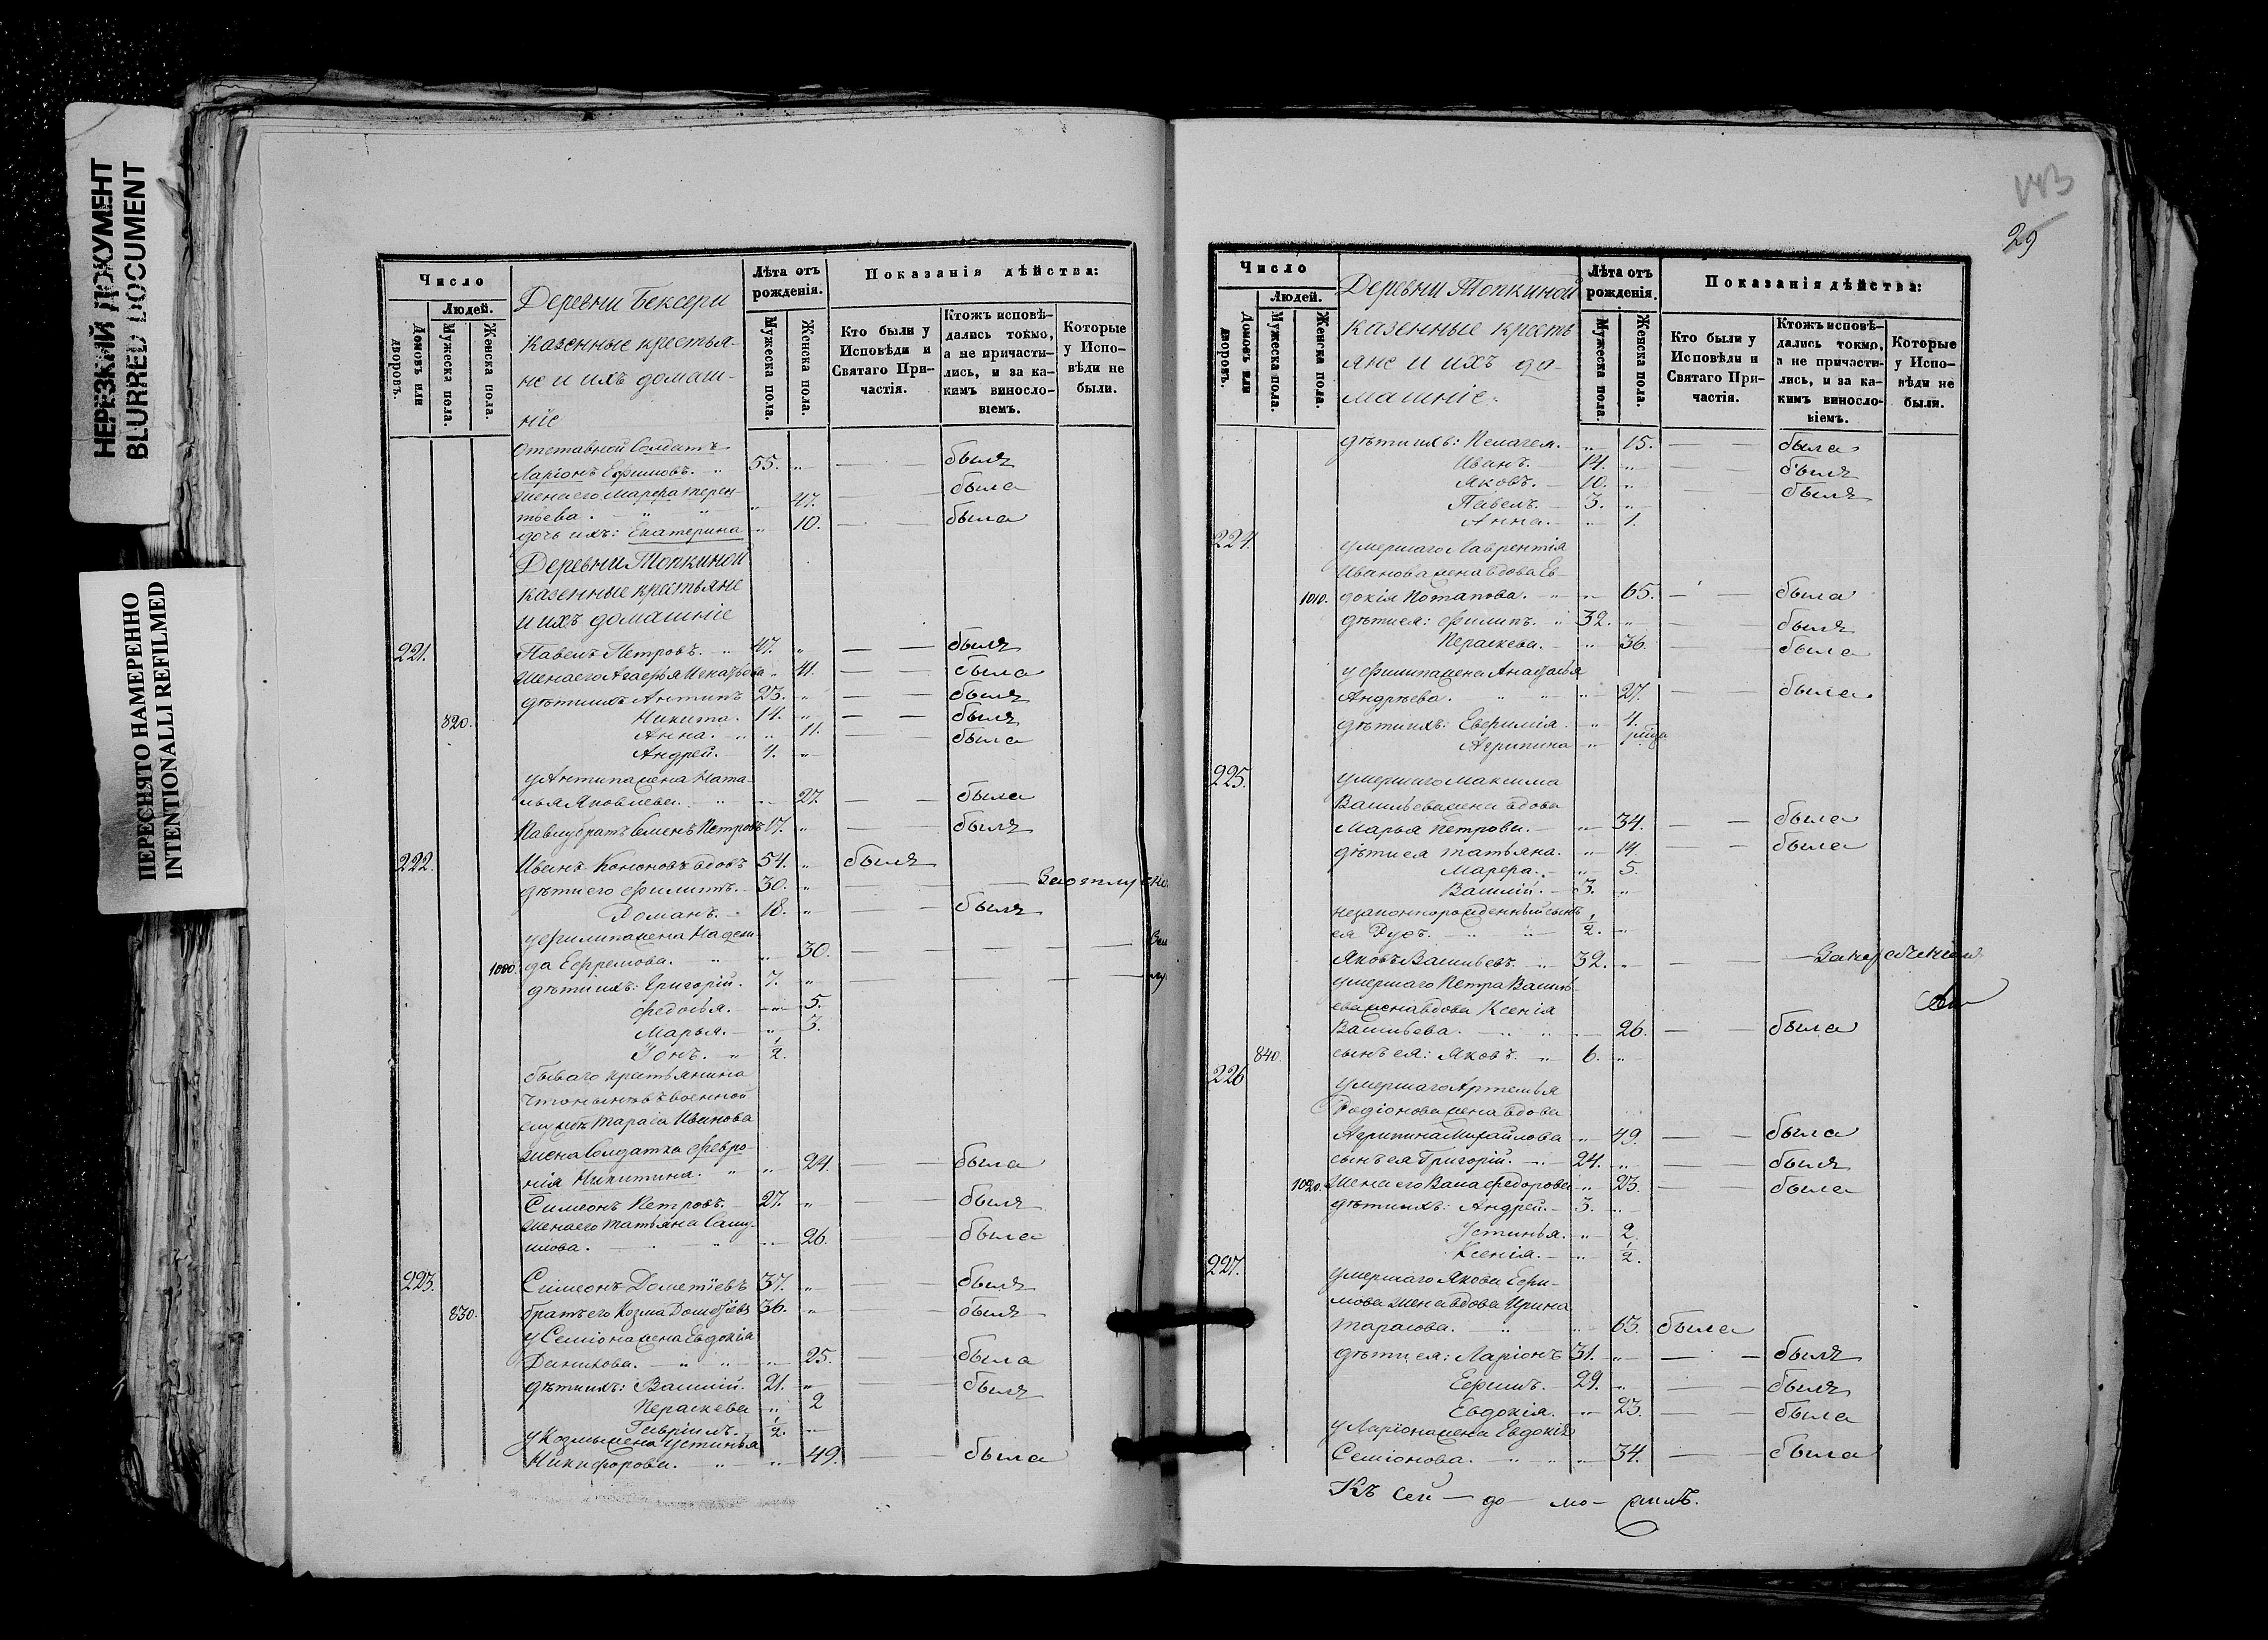 НЕРЕЗКИЙ ДОКУМЕНТ
BLURRED DOCUMENT
ПЕРЕСНЯТО НАМЕРЕННО
INTENTIONALLI REFILMED
Число
Людей.
Домовъ или дворовъ.
Мужеска пола.
Женска пола.
Деревни Бексери
казенные крестья-
не и ихъ домаш-
ніе
Лѣта отъ рожденія.
Мужеска пола.
Женска пола.
Показанія дѣйства:
Кто были у Исповѣди и Святаго Причастія.
Ктожъ исповѣ-
дались токмо,
а не причасти-
лись, и за ка-
кимъ винosло-
віемъ.
Которые
у Испо-
вѣди не
были.
Отставной Солдатъ
Ларіонъ Ефимовъ. 55. былъ
жена его Марфа Терен-
тьева. 47. была
дочь ихъ: Екатерина 10. была
Деревни Топкиной
казенные крестьяне
и ихъ домашніе
221. Павелъ Петровъ. 47. былъ
жена его Агафья Игнатьева 41. была
дѣти ихъ Антипъ 23. былъ
820. Никита. 14. былъ
Анна. 11. была
Андрей. 4.
у Антипа жена Ната-
лья Яковлева. 27. была
Павлу братъ Семенъ Петровъ 17. былъ
222. Иванъ Кононовъ вдовъ 54. былъ
дѣти его Филиппъ. 30. За отлуч
Романъ. 18. былъ
у Филипа жена Надеж-
1000. да Ефремова. 30.
дѣти ихъ: Григорій. 7.
Федосья. 5.
Марья. 3.
Іонъ. 1/2.
бываго крестьянина
что нынѣ въ военной
службѣ Тараса Иванова
жена Солдатка Февро-
нія Никитина. 24. была
Симеонъ Петровъ. 27. былъ
жена его Татьяна Саму-
илова. 26. была
223. Симеонъ Дометіевъ 37. былъ
830. братъ его Козма Дометіевъ 36. былъ
у Семіона жена Евдокія
Данилова. 25. была
дѣти ихъ: Василій. 21. былъ
Пераскева 2
Гавріилъ. 1/2.
у Козмы жена Устинья
Никифорова. 49. была
143
29
Число
Людей.
Домовъ или дворовъ.
Мужеска пола.
Женска пола.
Деревни Топкиной
казенные кресть
яне и ихъ до-
машніе.
Лѣта отъ рожденія.
Мужеска пола.
Женска пола.
Показанія дѣйства:
Кто были у Исповѣди и Святаго Причастія.
Ктожъ исповѣ-
дались токмо,
а не причасти-
лись, и за ка-
кимъ винosло-
віемъ.
Которые
у Испо-
вѣди не
были.
дѣти ихъ: Пелагея. 15. была
Иванъ. 14. былъ
Яковъ. 10. былъ
Павелъ. 3.
Анна. 1.
224. умершаго Лаврентія
Иванова жена вдова Ев-
1010. докія Потапова. 65. была
дѣти ея: Филипъ. 32. былъ
Пераскева. 36. была
у Филипа жена Анастасья
Андреева. 27. была
дѣти ихъ: Евфимія. 4.
Агрипина
225. умершаго Максима
Васильева жена вдова
Марья Петрова. 34. была
дѣти ея Татьяна. 14. была
Марфа. 5.
Василій. 3.
незаконнорожденный сынъ
ея Руфъ. 1/2.
Яковъ Васильевъ. 32.
умершаго Петра Василь-
ева жена вдова Ксенія
Васильева. 26. была
840. сынъ ея: Яковъ. 6.
226 умершаго Артемья
Родіонова жена вдова
Агрипина Михайлова 49. была
сынъ ея Григорій. 24. былъ
1020. жена его Васса Федорова 23. была
дѣти ихъ: Андрей. 3.
Устинья. 2
Ксенія. 1/2.
227. умершаго Якова Ефи-
мова жена вдова Ирина
Тарасова. 63. была
дѣти ея: Ларіонъ 31. былъ
Ефимъ. 29. былъ
Евдокія. 23. была
у Ларіона жена Евдокія
Семіонова. 34. была
Къ сей